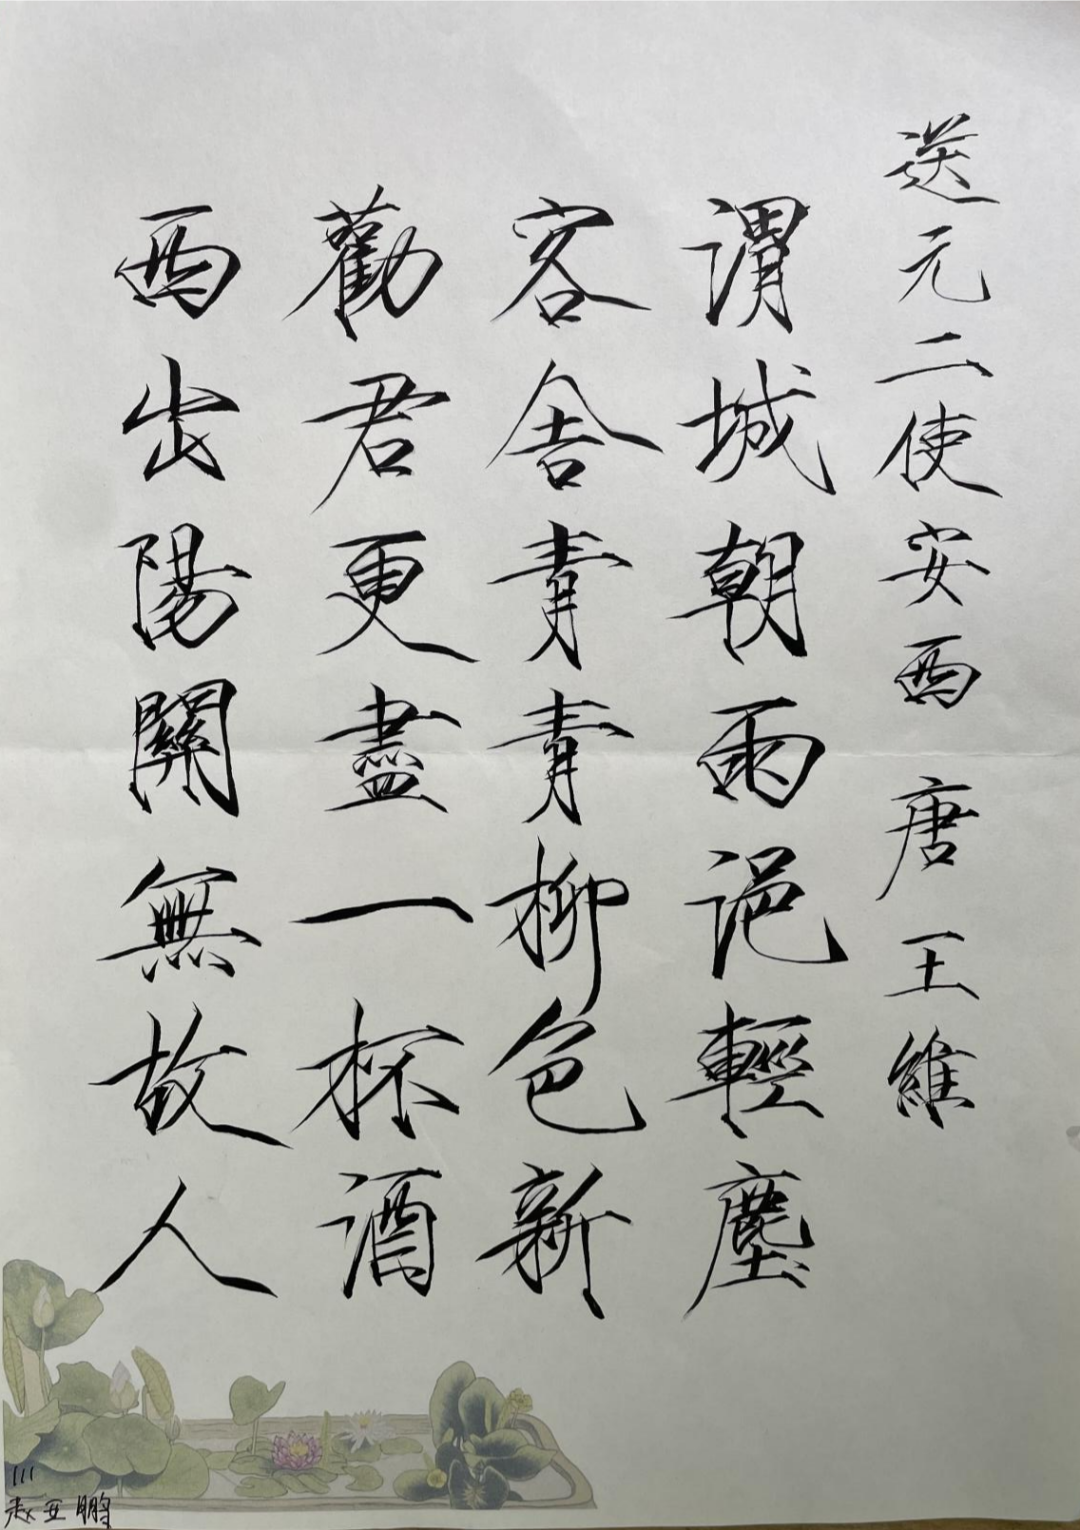 送元二使安西 唐 王維
渭城朝雨浥輕塵
客舍青青柳色新
勸君更盡一杯酒
西出陽關無故人
111
赵亚鹏